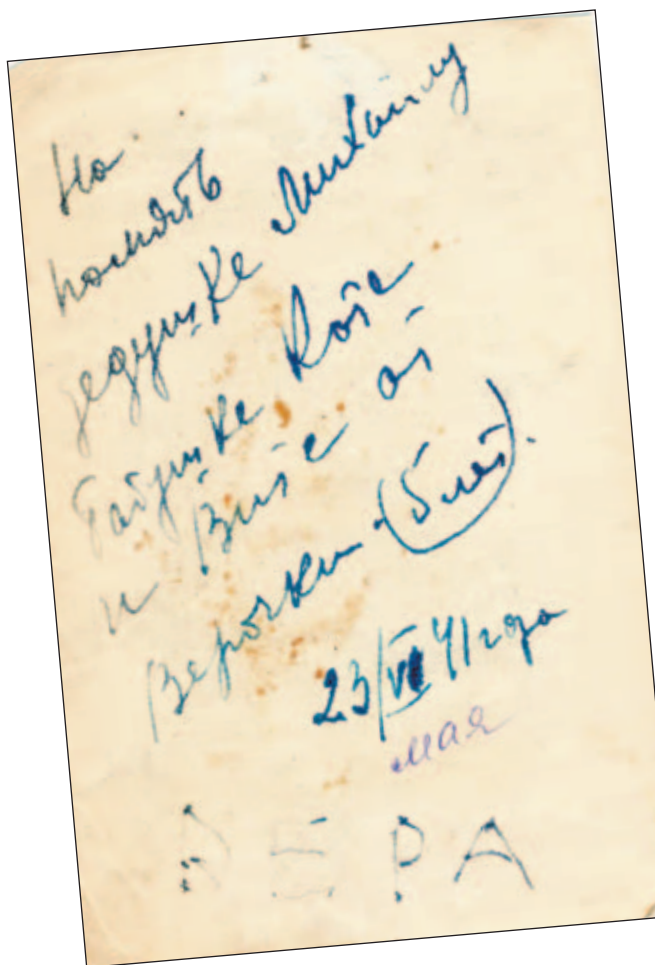 На
память
дедушке Михаилу
бабушке Кате
и Вите от
Верочки (5 лет).
23/VI 41 года
мая
ВЕРА